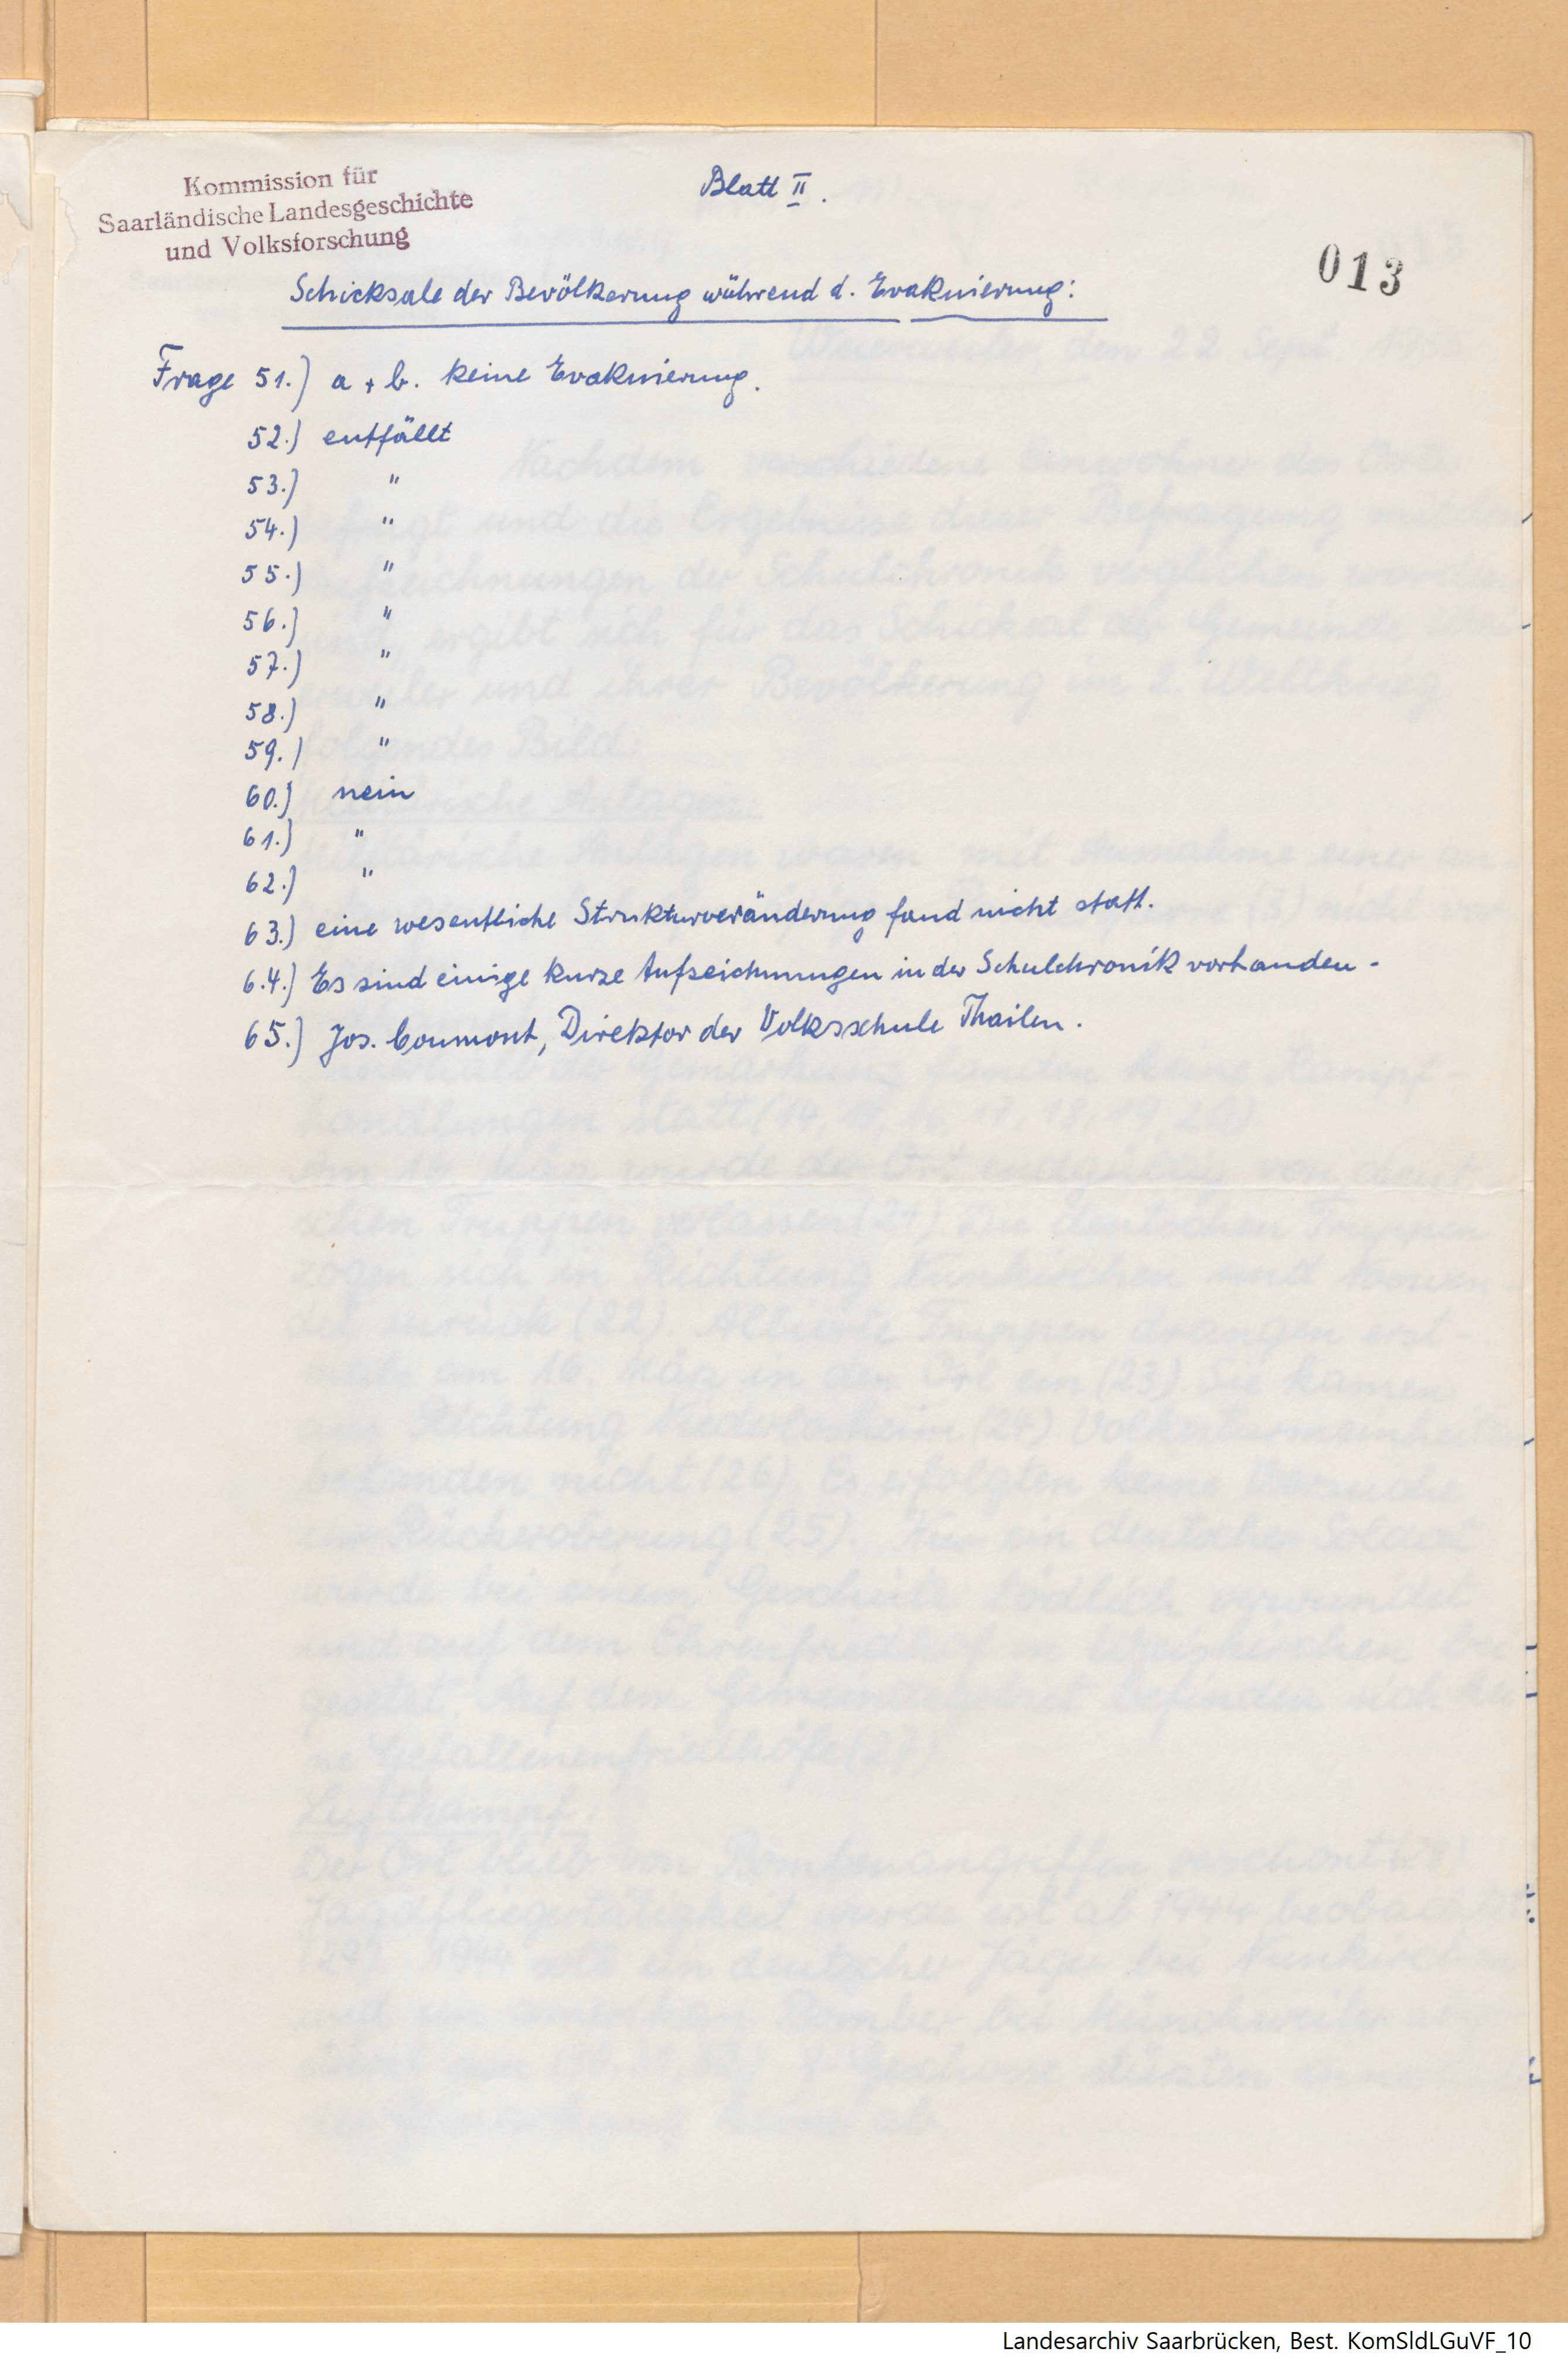 Kommission für
Saarländische Landesgeschichte
und Volksforschung
Blatt II.
013
Schicksale der Bevölkerung während d. Evakuierung:
Frage 51.) a + b. keine Evakuierung.
52.) entfällt
53.) "
54.) "
55.) "
56.) "
57.) "
58.) "
59.) "
60.) nein
61.) "
62.) "
63.) eine wesentliche Strukturveränderung fand nicht statt.
6.4.) Es sind einige kurze Aufzeichnungen in der Schulchronik vorhanden -
65.) Jos. Coumont, Direktor der Volksschule Thailen.
Landesarchiv Saarbrücken, Best. KomSldLGuVF_10